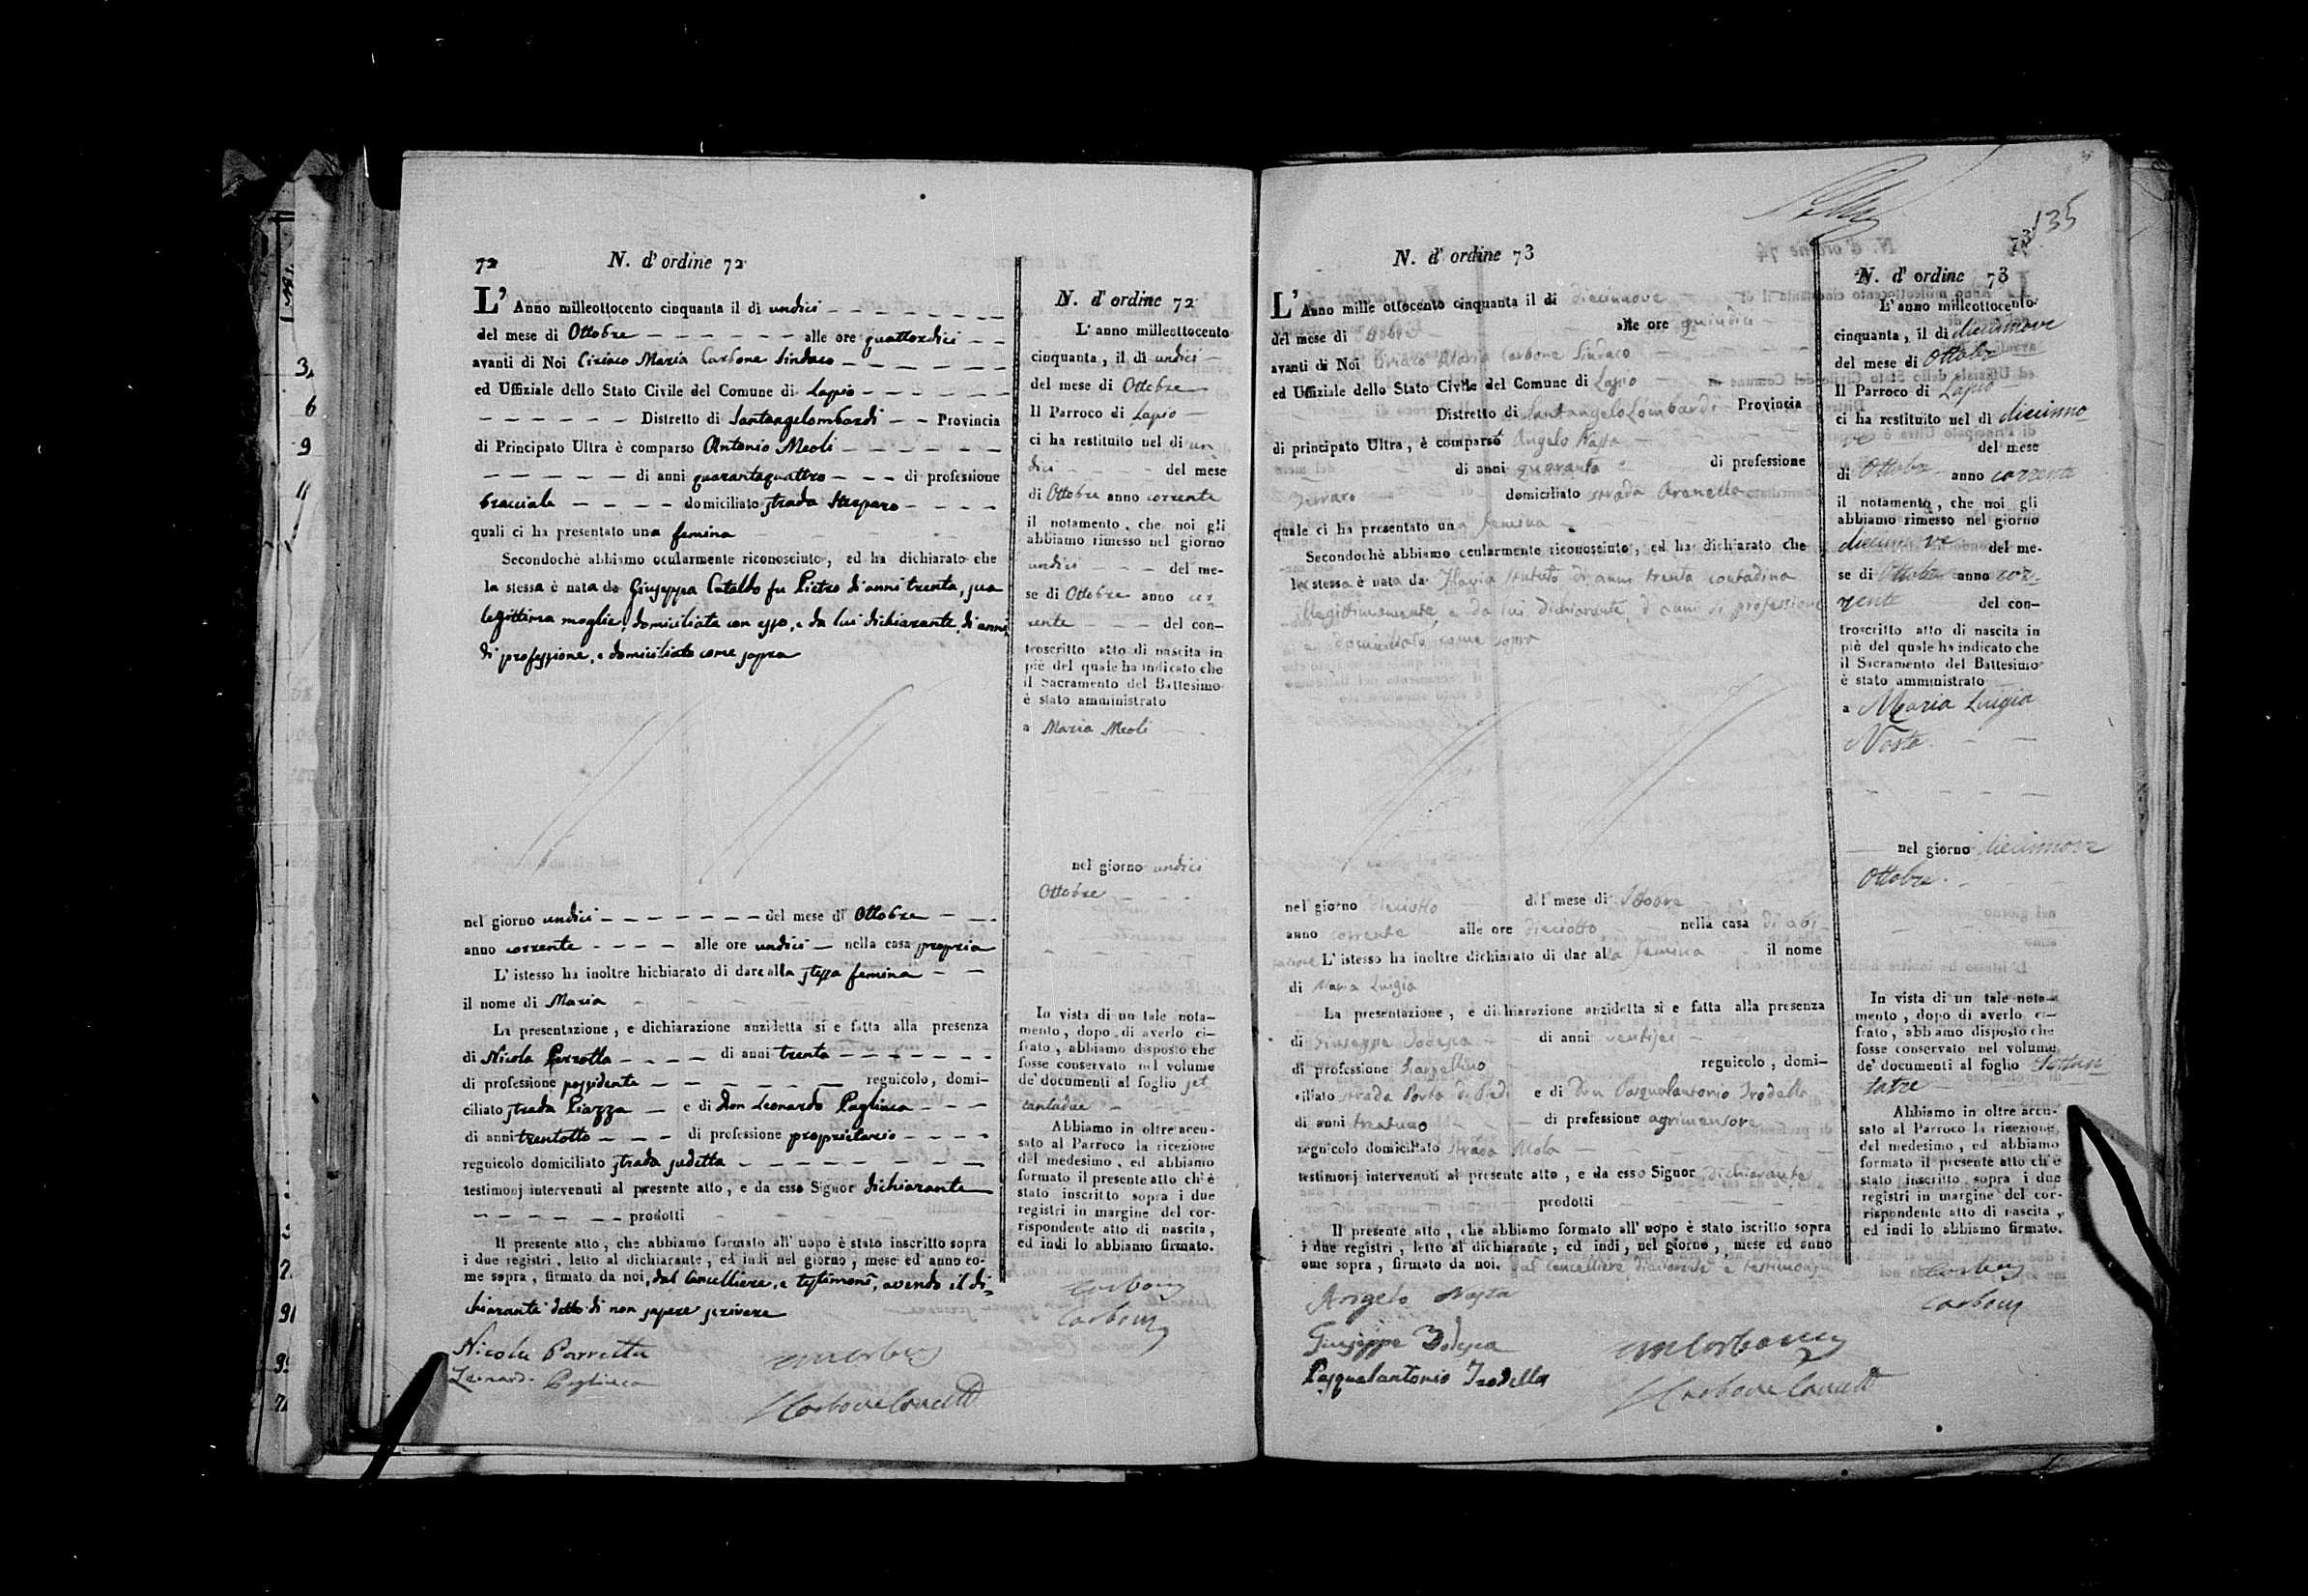 72 N. d' ordine 72
L' Anno milleottocento cinquanta il dì undici
del mese di Ottobre alle ore quattordici
avanti di Noi Ciriaco Maria Carbone Sindaco
ed Uffiziale dello Stato Civile del Comune di Lapio
Distretto di Santangelombardi Provincia
di Principato Ultra è comparso Antonio Meoli
di anni quarantaquattro di professione
bracciale domiciliato strada
quali ci ha presentato una femina
Secondochè abbiamo ocularmente riconosciuto, ed ha dichiarato che
la stessa è nata da Giuseppa Cataldo fu Pietro di anni trenta, sua
legittima moglie, domiciliata con esso, e da lui dichiarante, di anni,
di professione, e domiciliato come sopra
nel giorno undici del mese di Ottobre
anno corrente alle ore undici nella casa propria
L' istesso ha inoltre hichiarato di dare alla stessa femina
il nome di Maria
La presentazione, e dichiarazione anzidetta si e fatta alla presenza
di Nicola Parrotta di anni trenta
di professione possidente regnicolo, domi-
ciliato strada Piazza e di Don Leonardo Pagliuca
di anni trentotto di professione proprietario
regnicolo domiciliato strada sudetta
testimonj intervenuti al presente atto, e da esso Signor dichiarante
prodotti
Il presente atto, che abbiamo formato all' uopo è stato inscritto sopra
i due registri, letto al dichiarante, ed indi nel giorno, mese ed anno co-
me sopra, firmato da noi, dal Cancelliere, e testimoni, avendo il di-
chiarante detto di non sapere scrivere
Nicola Parrotta
Leonardo Pagliuca
N. d' ordine 72
L' anno milleottocento
cinquanta, il dì undici
del mese di Ottobre
Il Parroco di Lapio
ci ha restituito nel dì un
dici del mese
di Ottobre anno corrente
il notamento, che noi gli
abbiamo rimesso nel giorno
undici del me-
se di Ottobre anno cor
rente del con-
troscritto atto di nascita in
piè del quale ha indicato che
il Sacramento del Battesimo
è stato amministrato
a Maria Meoli
nel giorno undici
Ottobre
In vista di un tale nota-
mento, dopo di averlo ci-
frato, abbiamo disposto che
fosse conservato nel volume
de' documenti al foglio set
tantadue
Abbiamo in oltre accu-
sato al Parroco la ricezione
del medesimo, ed abbiamo
formato il presente atto ch' è
stato inscritto sopra i due
registri in margine del cor-
rispondente atto di nascita,
ed indi lo abbiamo firmato.
Carbone
Carbone
135
73
N. d' ordine 73
L' Anno mille ottocento cinquanta il di diecinnove
del mese di Ottobre alle ore quindici
avanti di Noi Ciriaco Maria Carbone Sindaco
ed Uffiziale dello Stato Civile del Comune di Lapio
Distretto di Santangelo Lombardi Provincia
di principato Ultra, è comparso Angelo Nasta
di anni quaranta di professione
Ferraro domiciliato strada Arenella
quale ci ha presentato una femina
Secondochè abbiamo ocularmente riconosciuto, ed ha dichiarato che
la stessa è nata da di anni trenta contadina
illegittimamente, e da lui dichiarante, d' anni di professione
e domiciliato come sopra
nel giorno dieciotto del mese di Ottobre
anno corrente alle ore dieciotto nella casa di abi-
tazione L' istesso ha inoltre dichiarato di dar alla femina il nome
di Maria Luigia
La presentazione, e dichiarazione anzidetta si e fatta alla presenza
di Giuseppe Todesca di anni ventisei
di professione regnicolo, domi-
ciliato strada Porta di Piedi e di Don Pasqualantonio Trodella
di anni trentuno di professione agrimensore
regnicolo domiciliato strada
testimonj intervenuti al presente atto, e da esso Signor dichiarante
prodotti
Il presente atto, che abbiamo formato all' uopo è stato iscritto sopra
i due registri, letto al dichiarante, ed indi, nel giorno, mese ed anno
ome sopra, firmato da noi, dal Cancelliere, dichiarante e testimonj
Angelo Nasta
Giuseppe Todesca
Pasqualantonio Trodella
N. d' ordine 73
L' anno milleottocento
cinquanta, il di diecinnove
del mese di Ottobre
Il Parroco di Lapio
ci ha restituito nel di diecinno
ve del mese
di Ottobre anno corrente
il notamento, che noi gli
abbiamo rimesso nel giorno
diecinnove del me-
se di Ottobre anno cor-
rente del con-
troscritto atto di nascita in
piè del quale ha indicato che
il Sacramento del Battesimo
è stato amministrato
a Maria Luigia
Nasta
nel giorno diecinnove
Ottobre
In vista di un tale nota-
mento, dopo di averlo ci-
frato, abbiamo disposto che
fosse conservato nel volume
de' documenti al foglio settan
tatre
Abbiamo in oltre accu-
sato al Parroco la ricezione
del medesimo, ed abbiamo
formato il presente atto ch' è
stato inscritto sopra i due
registri in margine del cor-
rispondente atto di nascita,
ed indi lo abbiamo firmato.
Carbone
Carbone